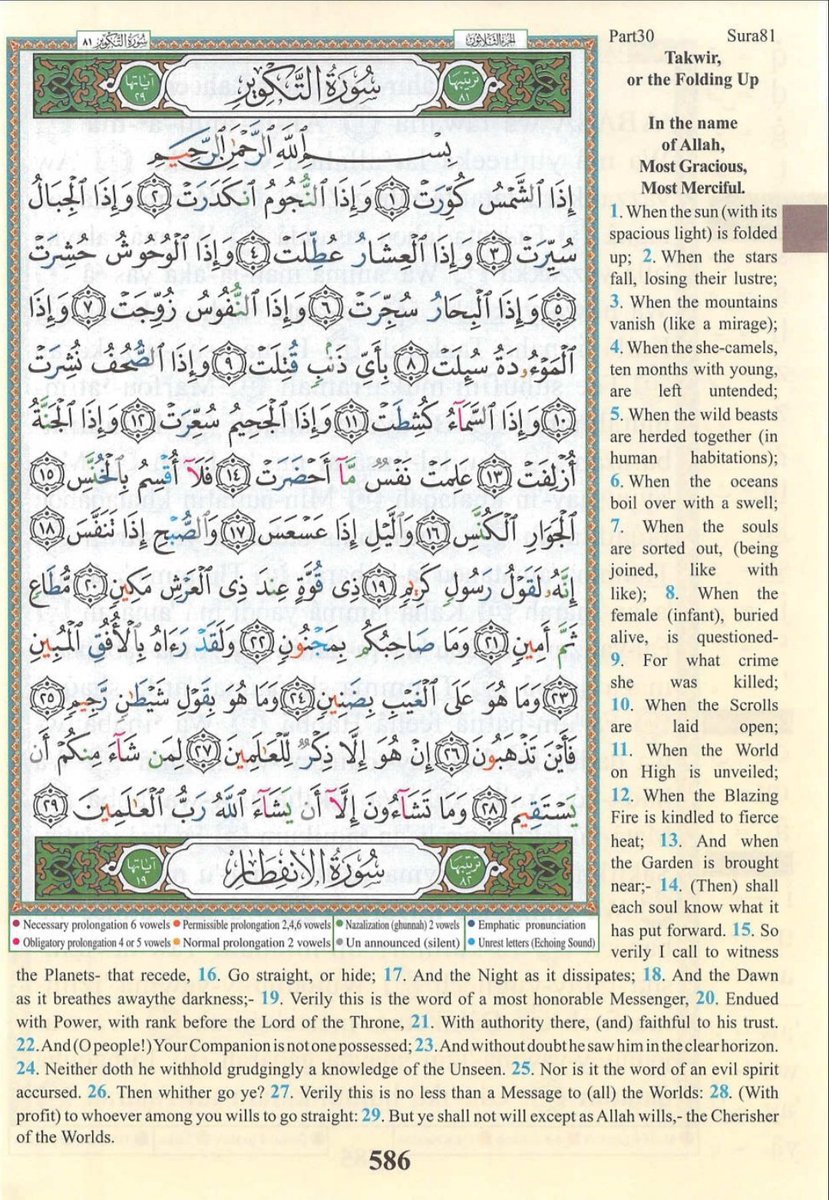 سُورَةُ التَّكْوِيرِ ٨١
الجُزْءُ الثَّلَاثُونَ
Part30 Sura81
Takwir,
or the Folding Up
In the name
of Allah,
Most Gracious,
Most Merciful.
ترتيبها ٨١
سُورَةُ التَّكْوِيرِ
آياتها ٢٩
بِسْمِ اللَّهِ الرَّحْمَٰنِ الرَّحِيمِ
إِذَا الشَّمْسُ كُوِّرَتْ ١ وَإِذَا النُّجُومُ انكَدَرَتْ ٢ وَإِذَا الْجِبَالُ
سُيِّرَتْ ٣ وَإِذَا الْعِشَارُ عُطِّلَتْ ٤ وَإِذَا الْوُحُوشُ حُشِرَتْ
٥ وَإِذَا الْبِحَارُ سُجِّرَتْ ٦ وَإِذَا النُّفُوسُ زُوِّجَتْ ٧ وَإِذَا
الْمَوْءُۥدَةُ سُئِلَتْ ٨ بِأَيِّ ذَنۢبٍ قُتِلَتْ ٩ وَإِذَا الصُّحُفُ نُشِرَتْ
١٠ وَإِذَا السَّمَآءُ كُشِطَتْ ١١ وَإِذَا الْجَحِيمُ سُعِّرَتْ ١٢ وَإِذَا الْجَنَّةُ
أُزْلِفَتْ ١٣ عَلِمَتْ نَفْسٌ مَّآ أَحْضَرَتْ ١٤ فَلَآ أُقْسِمُ بِالْخُنَّسِ ١٥
الْجَوَارِ الْكُنَّسِ ١٦ وَالَّيْلِ إِذَا عَسْعَسَ ١٧ وَالصُّبْحِ إِذَا تَنَفَّسَ ١٨
إِنَّهُۥ لَقَوْلُ رَسُولٍ كَرِيمٍ ١٩ ذِي قُوَّةٍ عِندَ ذِي الْعَرْشِ مَكِينٍ ٢٠ مُّطَاعٍ
ثَمَّ أَمِينٍ ٢١ وَمَا صَاحِبُكُم بِمَجْنُونٍ ٢٢ وَلَقَدْ رَءَاهُ بِالْأُفُقِ الْمُبِينِ
٢٣ وَمَا هُوَ عَلَى الْغَيْبِ بِضَنِينٍ ٢٤ وَمَا هُوَ بِقَوْلِ شَيْطَٰنٍ رَّجِيمٍ ٢٥
فَأَيْنَ تَذْهَبُونَ ٢٦ إِنْ هُوَ إِلَّا ذِكْرٌ لِّلْعَٰلَمِينَ ٢٧ لِمَن شَآءَ مِنكُمْ أَن
يَسْتَقِيمَ ٢٨ وَمَا تَشَآءُونَ إِلَّآ أَن يَشَآءَ اللَّهُ رَبُّ الْعَٰلَمِينَ ٢٩
ترتيبها ٨٢
سُورَةُ الِانفِطَارِ
آياتها ١٩
Necessary prolongation 6 vowels Permissible prolongation 2,4,6 vowels Nazalization (ghunnah) 2 vowels Emphatic pronunciation
Obligatory prolongation 4 or 5 vowels Normal prolongation 2 vowels Un announced (silent) Unrest letters (Echoing Sound)
1. When the sun (with its
spacious light) is folded
up; 2. When the stars
fall, losing their lustre;
3. When the mountains
vanish (like a mirage);
4. When the she-camels,
ten months with young,
are left untended;
5. When the wild beasts
are herded together (in
human habitations);
6. When the oceans
boil over with a swell;
7. When the souls
are sorted out, (being
joined, like with
like); 8. When the
female (infant), buried
alive, is questioned-
9. For what crime
she was killed;
10. When the Scrolls
are laid open;
11. When the World
on High is unveiled;
12. When the Blazing
Fire is kindled to fierce
heat; 13. And when
the Garden is brought
near;- 14. (Then) shall
each soul know what it
has put forward. 15. So
verily I call to witness
the Planets- that recede, 16. Go straight, or hide; 17. And the Night as it dissipates; 18. And the Dawn
as it breathes awaythe darkness;- 19. Verily this is the word of a most honorable Messenger, 20. Endued
with Power, with rank before the Lord of the Throne, 21. With authority there, (and) faithful to his trust.
22. And (O people!) Your Companion is not one possessed; 23. And without doubt he saw him in the clear horizon.
24. Neither doth he withhold grudgingly a knowledge of the Unseen. 25. Nor is it the word of an evil spirit
accursed. 26. Then whither go ye? 27. Verily this is no less than a Message to (all) the Worlds: 28. (With
profit) to whoever among you wills to go straight: 29. But ye shall not will except as Allah wills,- the Cherisher
of the Worlds.
586